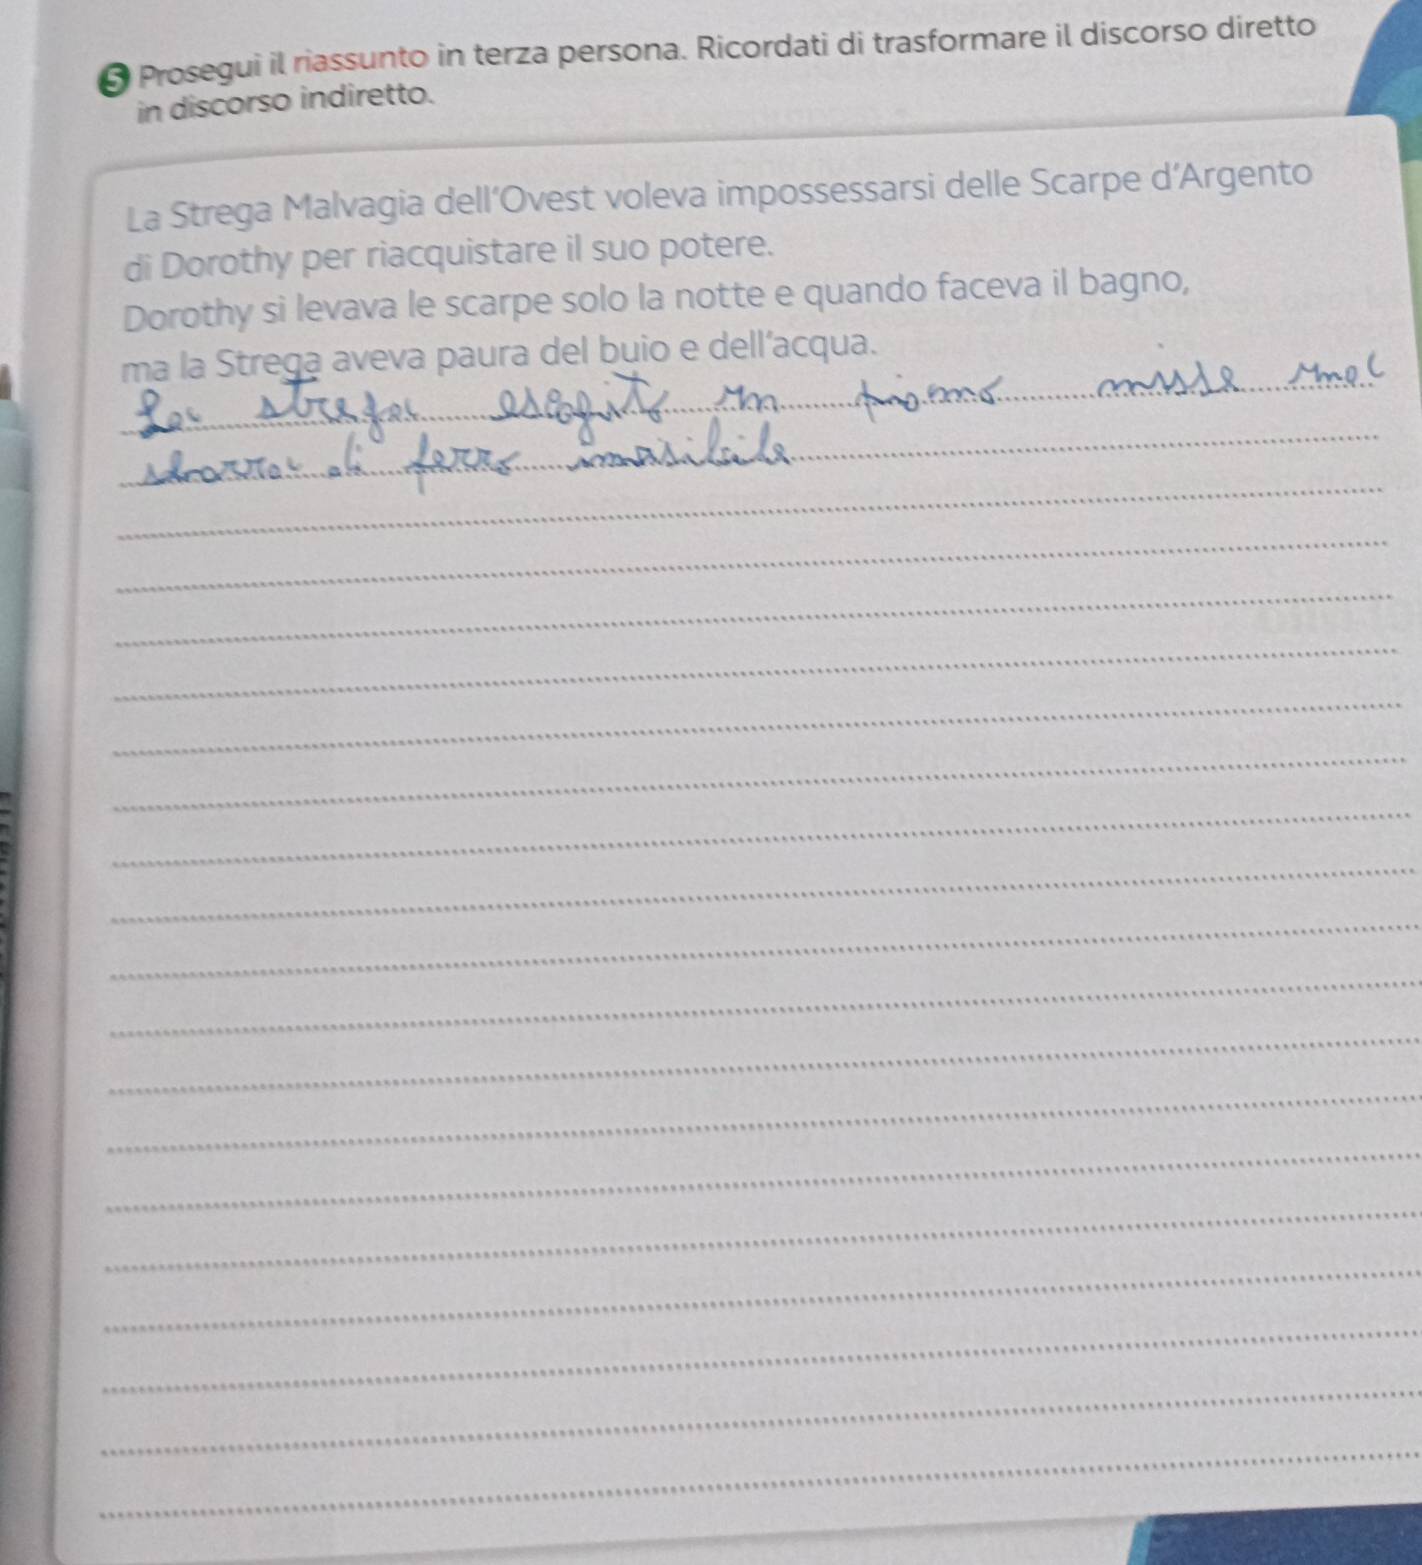 5 Prosegui il riassunto in terza persona. Ricordati di trasformare il discorso diretto
in discorso indiretto.
La Strega Malvagia dell'Ovest voleva impossessarsi delle Scarpe d'Argento
di Dorothy per riacquistare il suo potere.
Dorothy si levava le scarpe solo la notte e quando faceva il bagno,
ma la Strega aveva paura del buio e dell'acqua.
La strega escogitò un piano mise una
sbarra di ferro